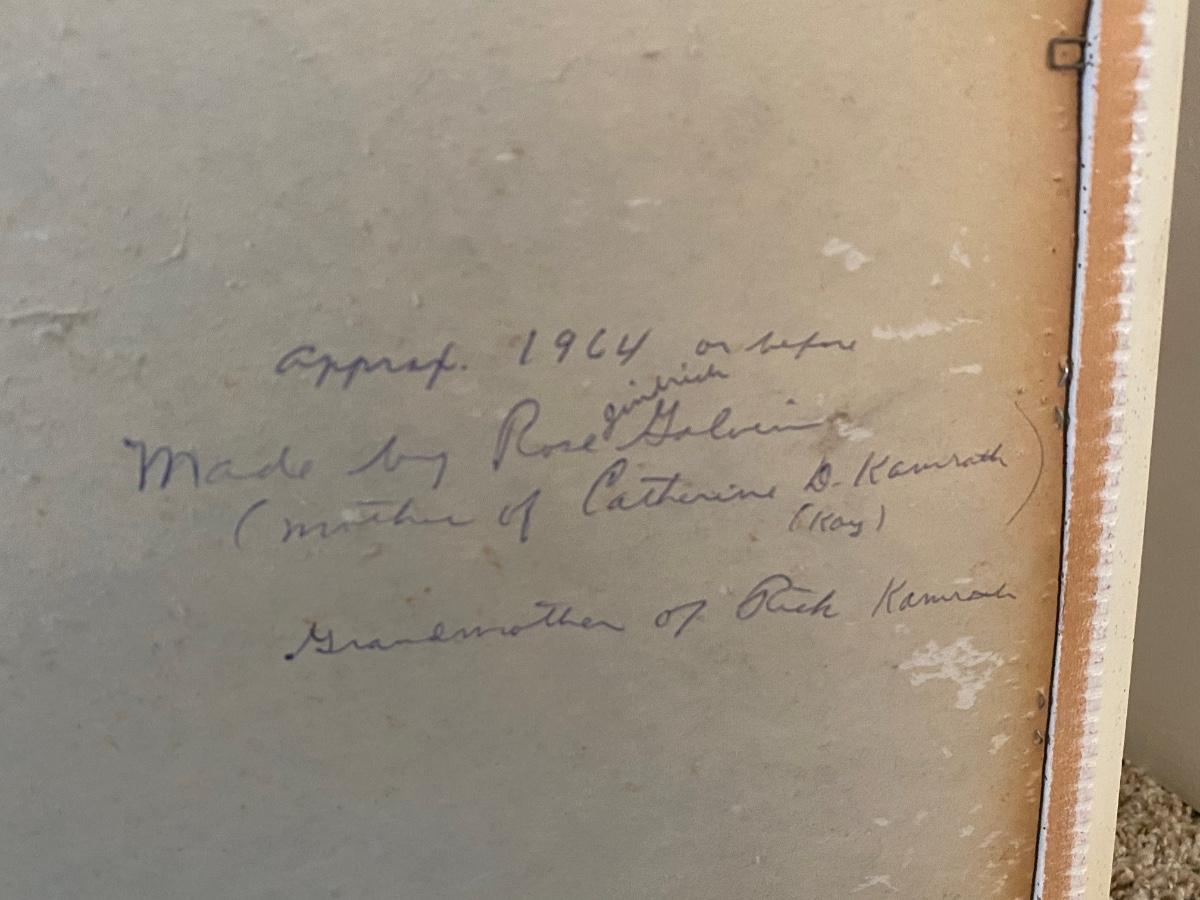 approx. 1964 or before
Jindrich
Made by Rose Galvin
(mother of Catherine D. Kamrath)
(Kay)
Grandmother of Rick Kamrath